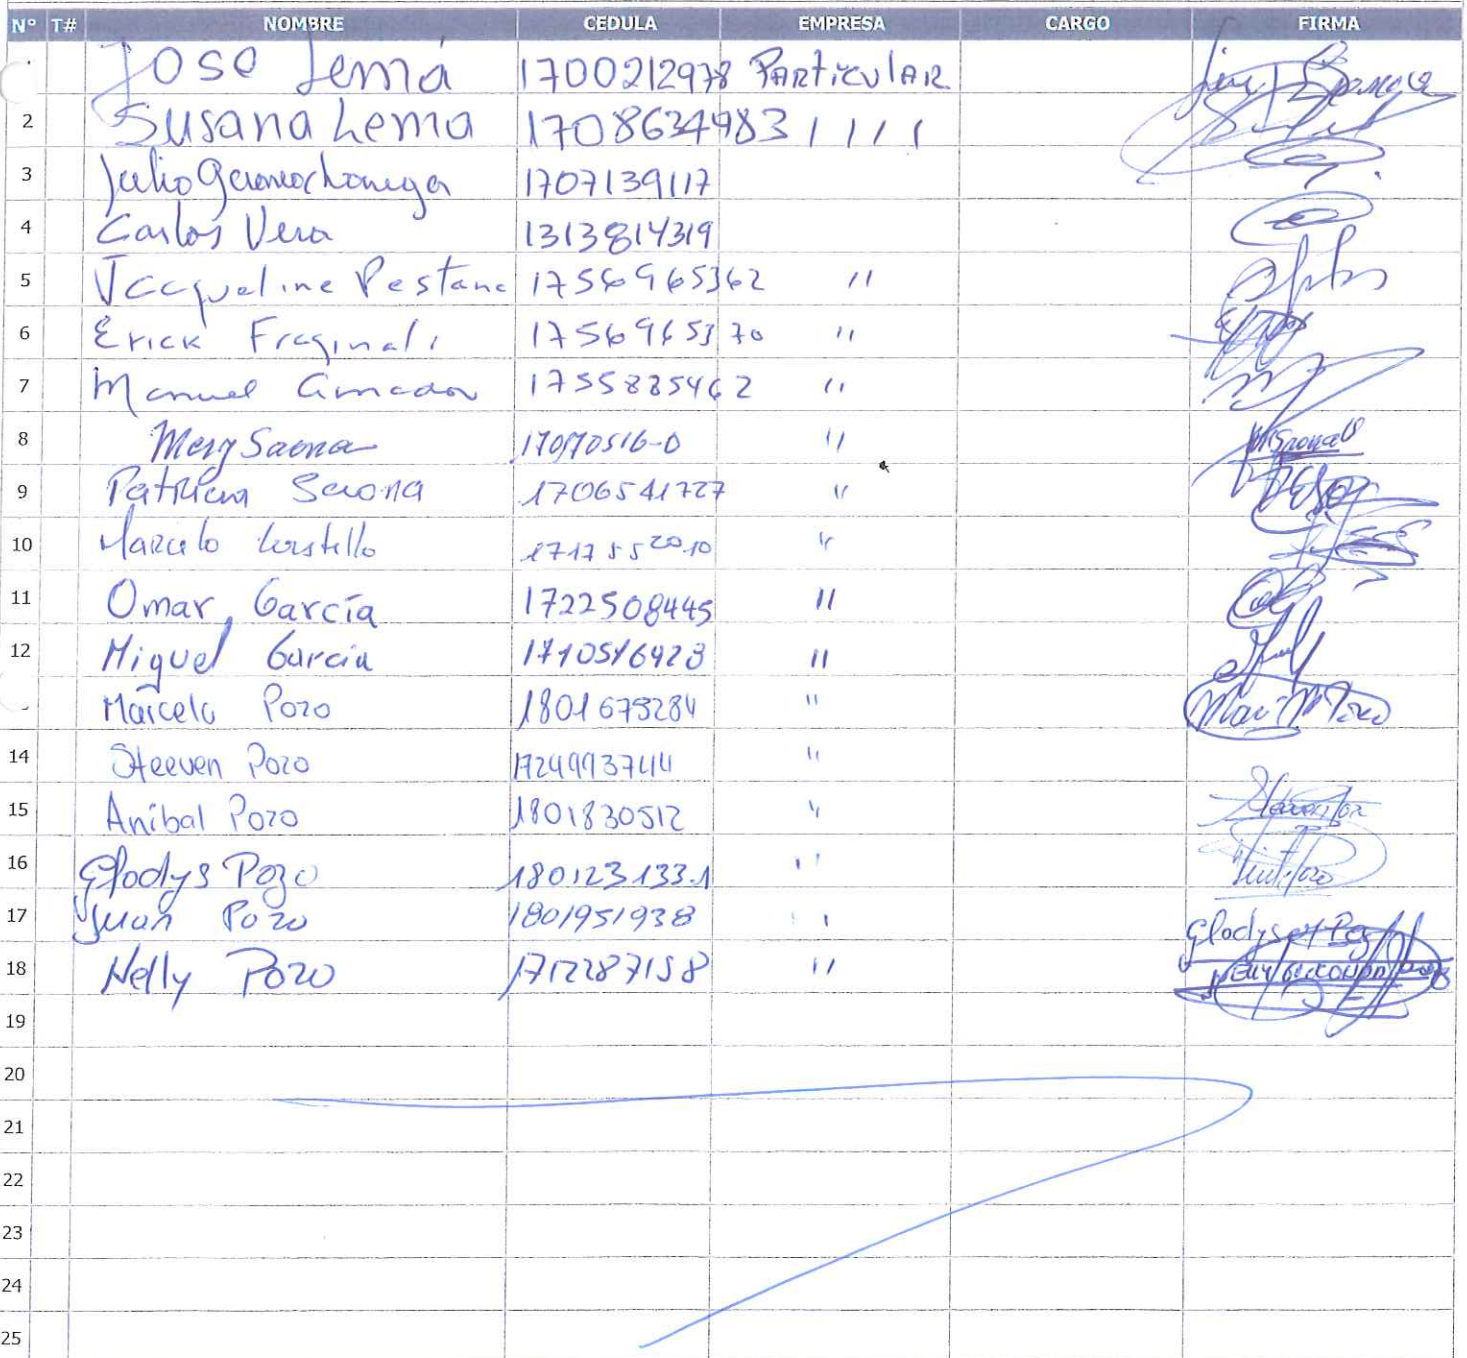 N° T# NOMBRE CEDULA EMPRESA CARGO FIRMA
Jose Lema 1700212978 PARTICULAR
2 Susana Lema 1708634983 ////
3 Julio 1707139117
4 Carlos Vera 1313814319
5 Jacqueline Pestana 1756965362 //
6 Erick Fraginals 1756965370 //
7 Manuel Amador 1755885462 //
8 Mery Saona 170170516-0 //
9 Patricia Saona 1706541727 //
10 Marcelo Castillo 1717552010 //
11 Omar García 1722508445 //
12 Miguel García 1710516428 //
Marcelo Pozo 1801679284 //
14 Steeven Pozo 1724993744 //
15 Aníbal Pozo 1801830512 //
16 Gladys Pozo 180123133-1 //
17 Juan Pozo 1801951938 //
18 Nelly Pozo 1712287158 //
19
20
21
22
23
24
25